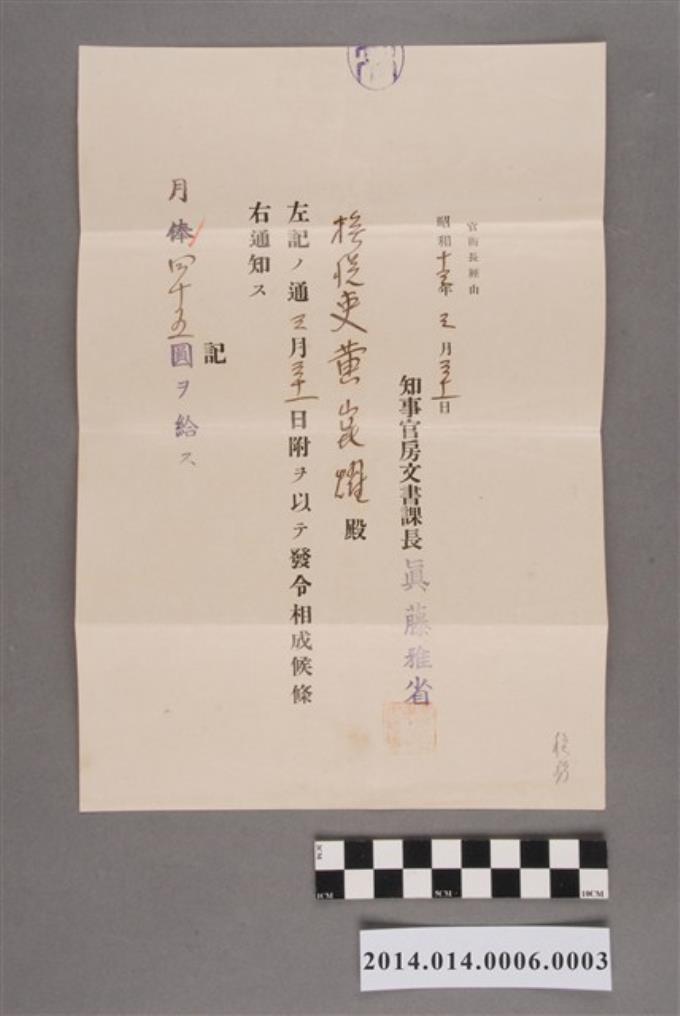 官衙長經由
昭和十三年三月三十一日
知事官房文書課長 眞藤雅省
稅吏黃崑耀殿
左記ノ通三月三十一日附ヲ以テ發令相成候條
右通知ス
記
月俸四十五圓ヲ給ス
1CM
5CM
10CM
2014.014.0006.0003